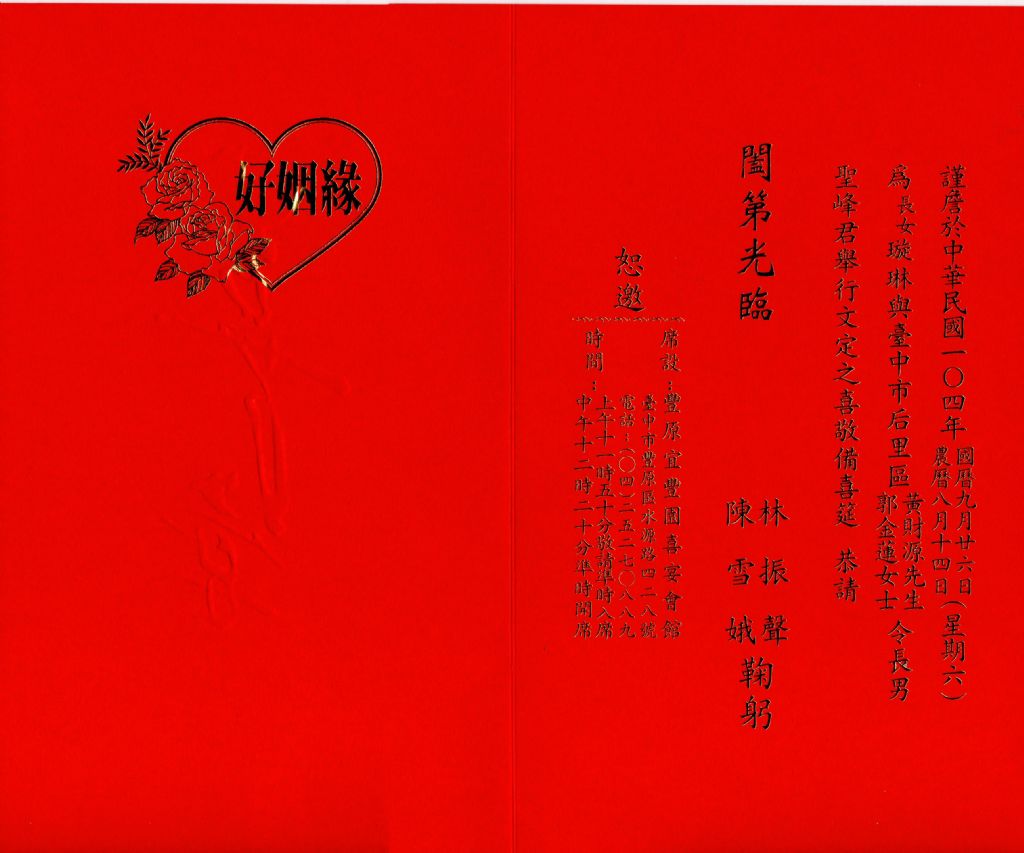 謹詹於中華民國一〇四年國曆九月廿六日農曆八月十四日(星期六)
為長女璇琳與臺中市后里區黃財源先生郭金蓮女士令長男
聖峰君舉行文定之喜敬備喜筵 恭請
闔第光臨
林振聲
陳雪娥
鞠躬
恕邀
席設:豐原宜豐園喜宴會館
臺中市豐原區水源路四二八號
電話:(〇四)二五二七〇八八九
時間:上午十一時五十分敬請準時入席
中午十二時二十分準時開席
好姻緣